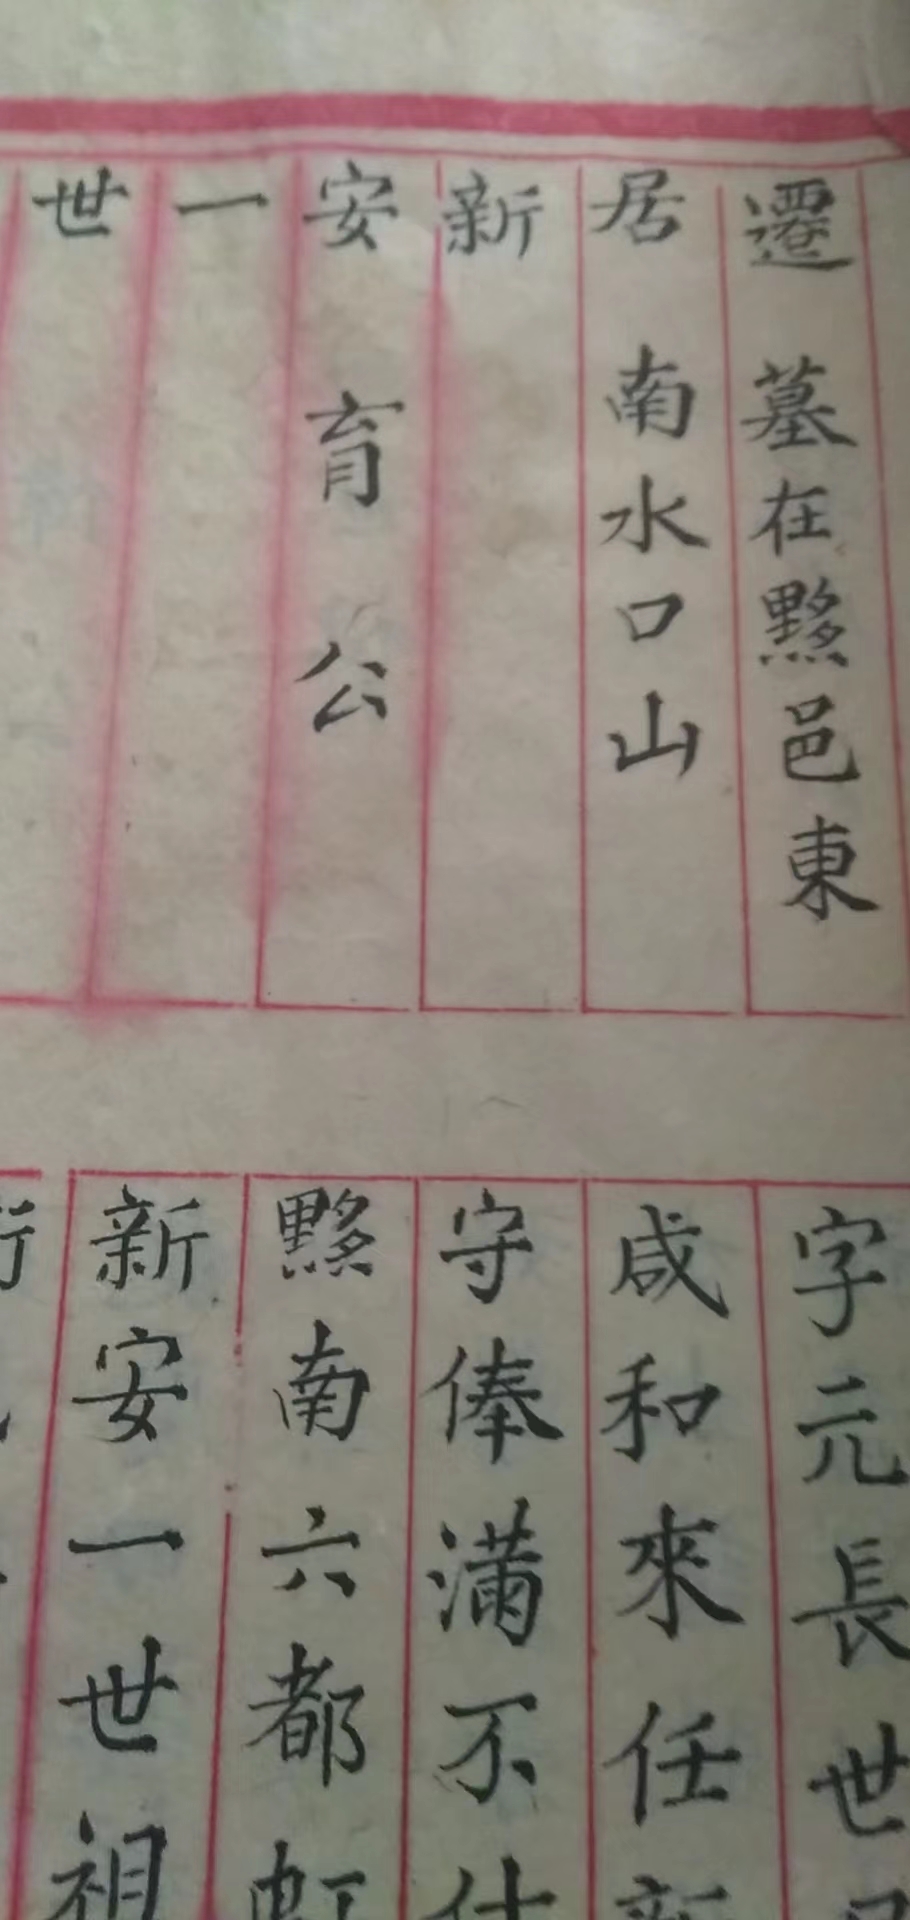 遷居新安一世
墓在黟邑東
南水口山
育公
字元長世
咸和來任新
守俸滿不仕
黟南六都虹
新安一世祖